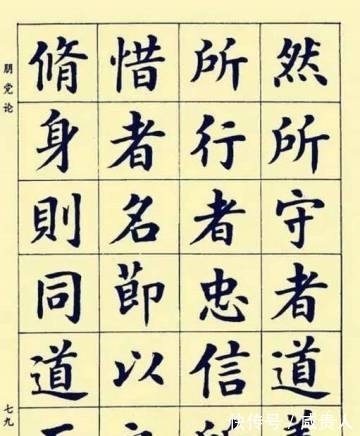 然所守者道
所行者忠信
惜者名節以
脩身則同道
朋党论
七九
快传号/咸贵人